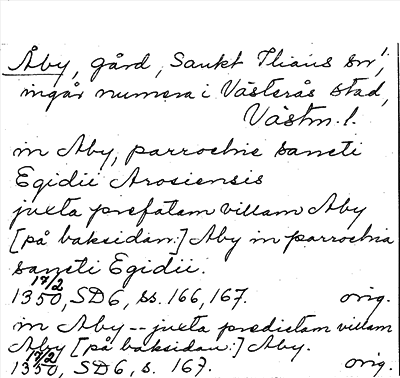 Åby, gård, Sankt Ilians sn,
ingår numera i Västerås stad,
Västm. l.
in Aby, parrochie sancti
Egidii Arosiensis
juxta prefatam villam Aby
[på baksidan:] Aby in parrochia
sancti Egidii.
17/2
1350, SD6, ss. 166, 167. orig.
in Aby -- juxta predictam villam
Aby [på baksidan:] Aby.
17/2
1350, SD6, s. 167. orig.